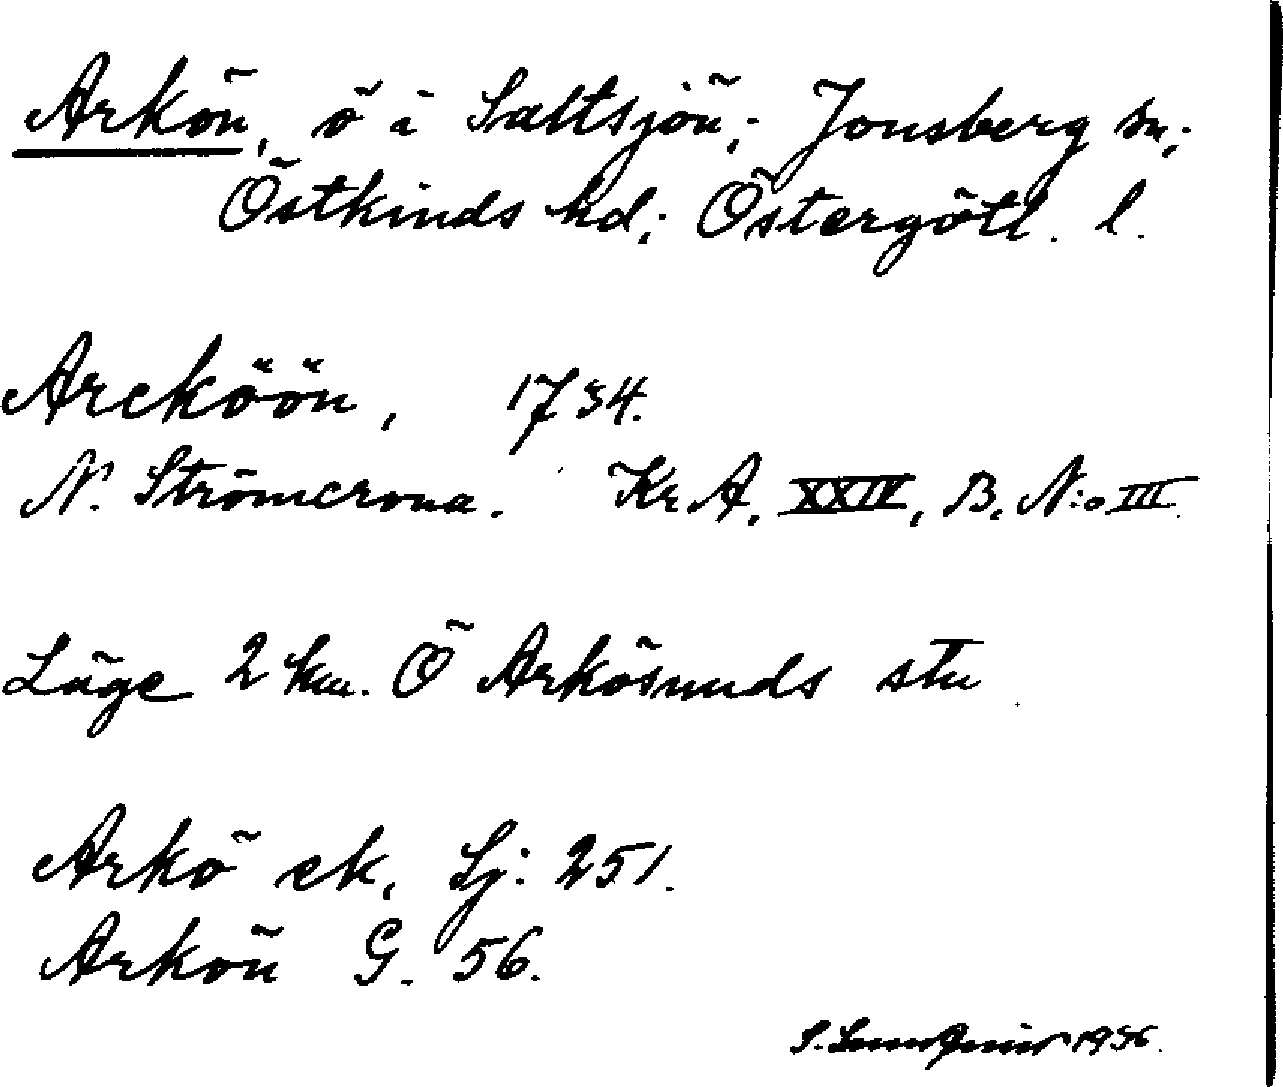 Arkön, ö i Saltsjön; Jonsberg sn;
Östkinds hd; Östergötl. l.
Arcköön, 1734.
N. Strömcrona. Kr. A. XXIV, B. N:o III.
Läge 2 km. Ö Arkösunds stn
Arkö ek, Lj: 251.
Arkön G. 56.
S. 1936.